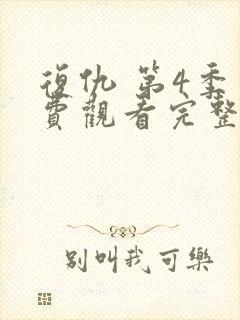 復仇 第4季
費觀看完整
別叫我可樂